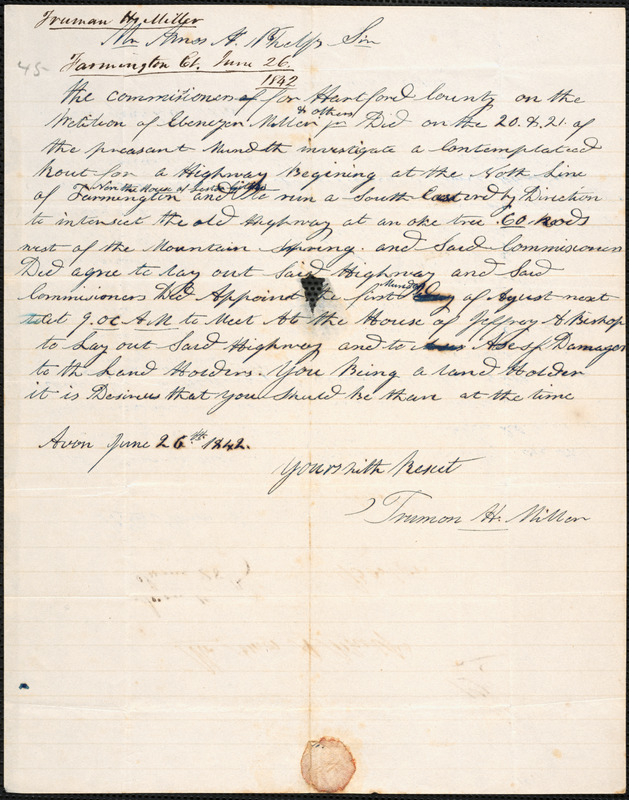 Truman H. Miller
45
Mr Amos A. Phelps Sir
Farmington Ct. June 26.
1842
the commisioners of for Hartford County on the
& others
Petition of Ebenezer Miller Did on the 20. & 21. of
the preasant Munth investigate a Contemplated
Rout for a Highway Begening at the Noth Line
Near the House of
of Farmington and to run a South Eastordby Direction
to intersect the old Highway at an oke tree 60 rods
west of the Mountain Spring. and Said Commisioners
Did agree to lay out Said Highway and Said
Munday
Commisioners Did Appoint the first Day of Agust next
at 9.oc A.M to Meet At the House of Jeffroy A Bishop
to Lay out Said Highway and to Asess Damages
to th Land Holders. You Being a land Holder
it is Desirus that you Should be thare at the time
Avon June 26th 1842.
Yours with Respect
Truman H. Miller